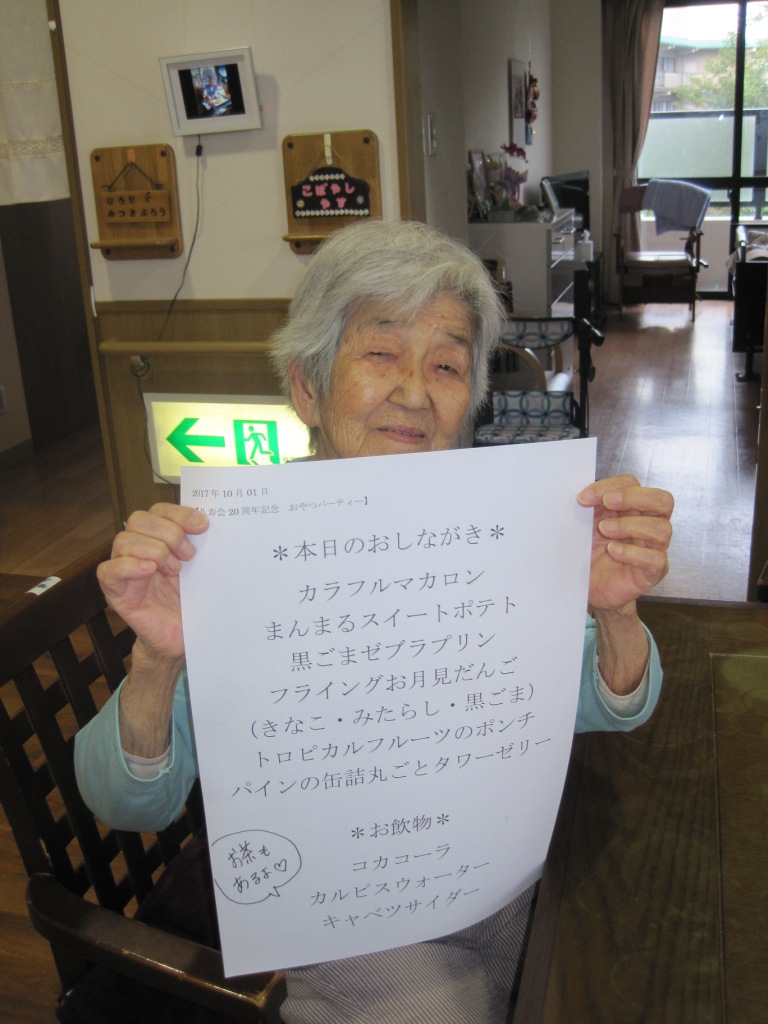 ひろせ
みつさぶろう
こばやし
やす
2017年10月01日
久寿会20周年記念 おやつパーティー】
＊本日のおしながき＊
カラフルマカロン
まんまるスイートポテト
黒ごまゼブラプリン
フライングお月見だんご
（きなこ・みたらし・黒ごま）
トロピカルフルーツのポンチ
パインの缶詰丸ごとタワーゼリー
＊お飲物＊
コカコーラ
カルピスウォーター
キャベツサイダー
お茶も
あるよ♡